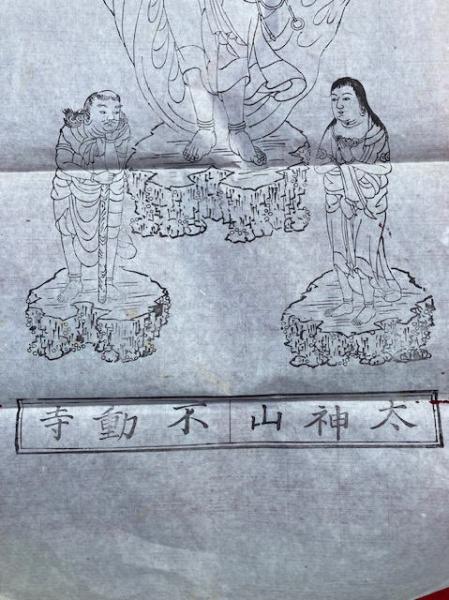 太神山不動寺